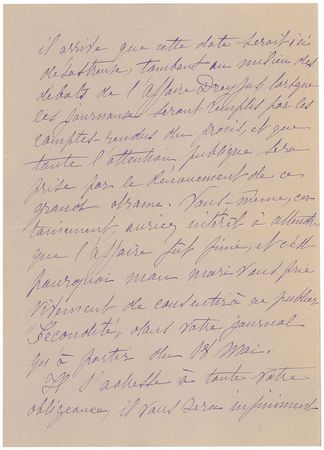 il arrive que cette date serait ici
désastreuse, tombant au milieu des
débats de l'Affaire Dreyfus, lorsque
les journaux seront remplis par les
comptes-rendus du procès, et que
toute l'attention publique sera
prise par le dénouement de ce
grand drame. Vous-même, cer
tainement, auriez intérêt à attendre
que l'affaire fût finie, et c'est
pourquoi mon mari vous prie
vivement de consentir à ne publier
"Fécondité, dans votre journal
qu'à partir du 18 Mai.
Il s'adresse à toute votre
obligeance, il vous sera infiniment